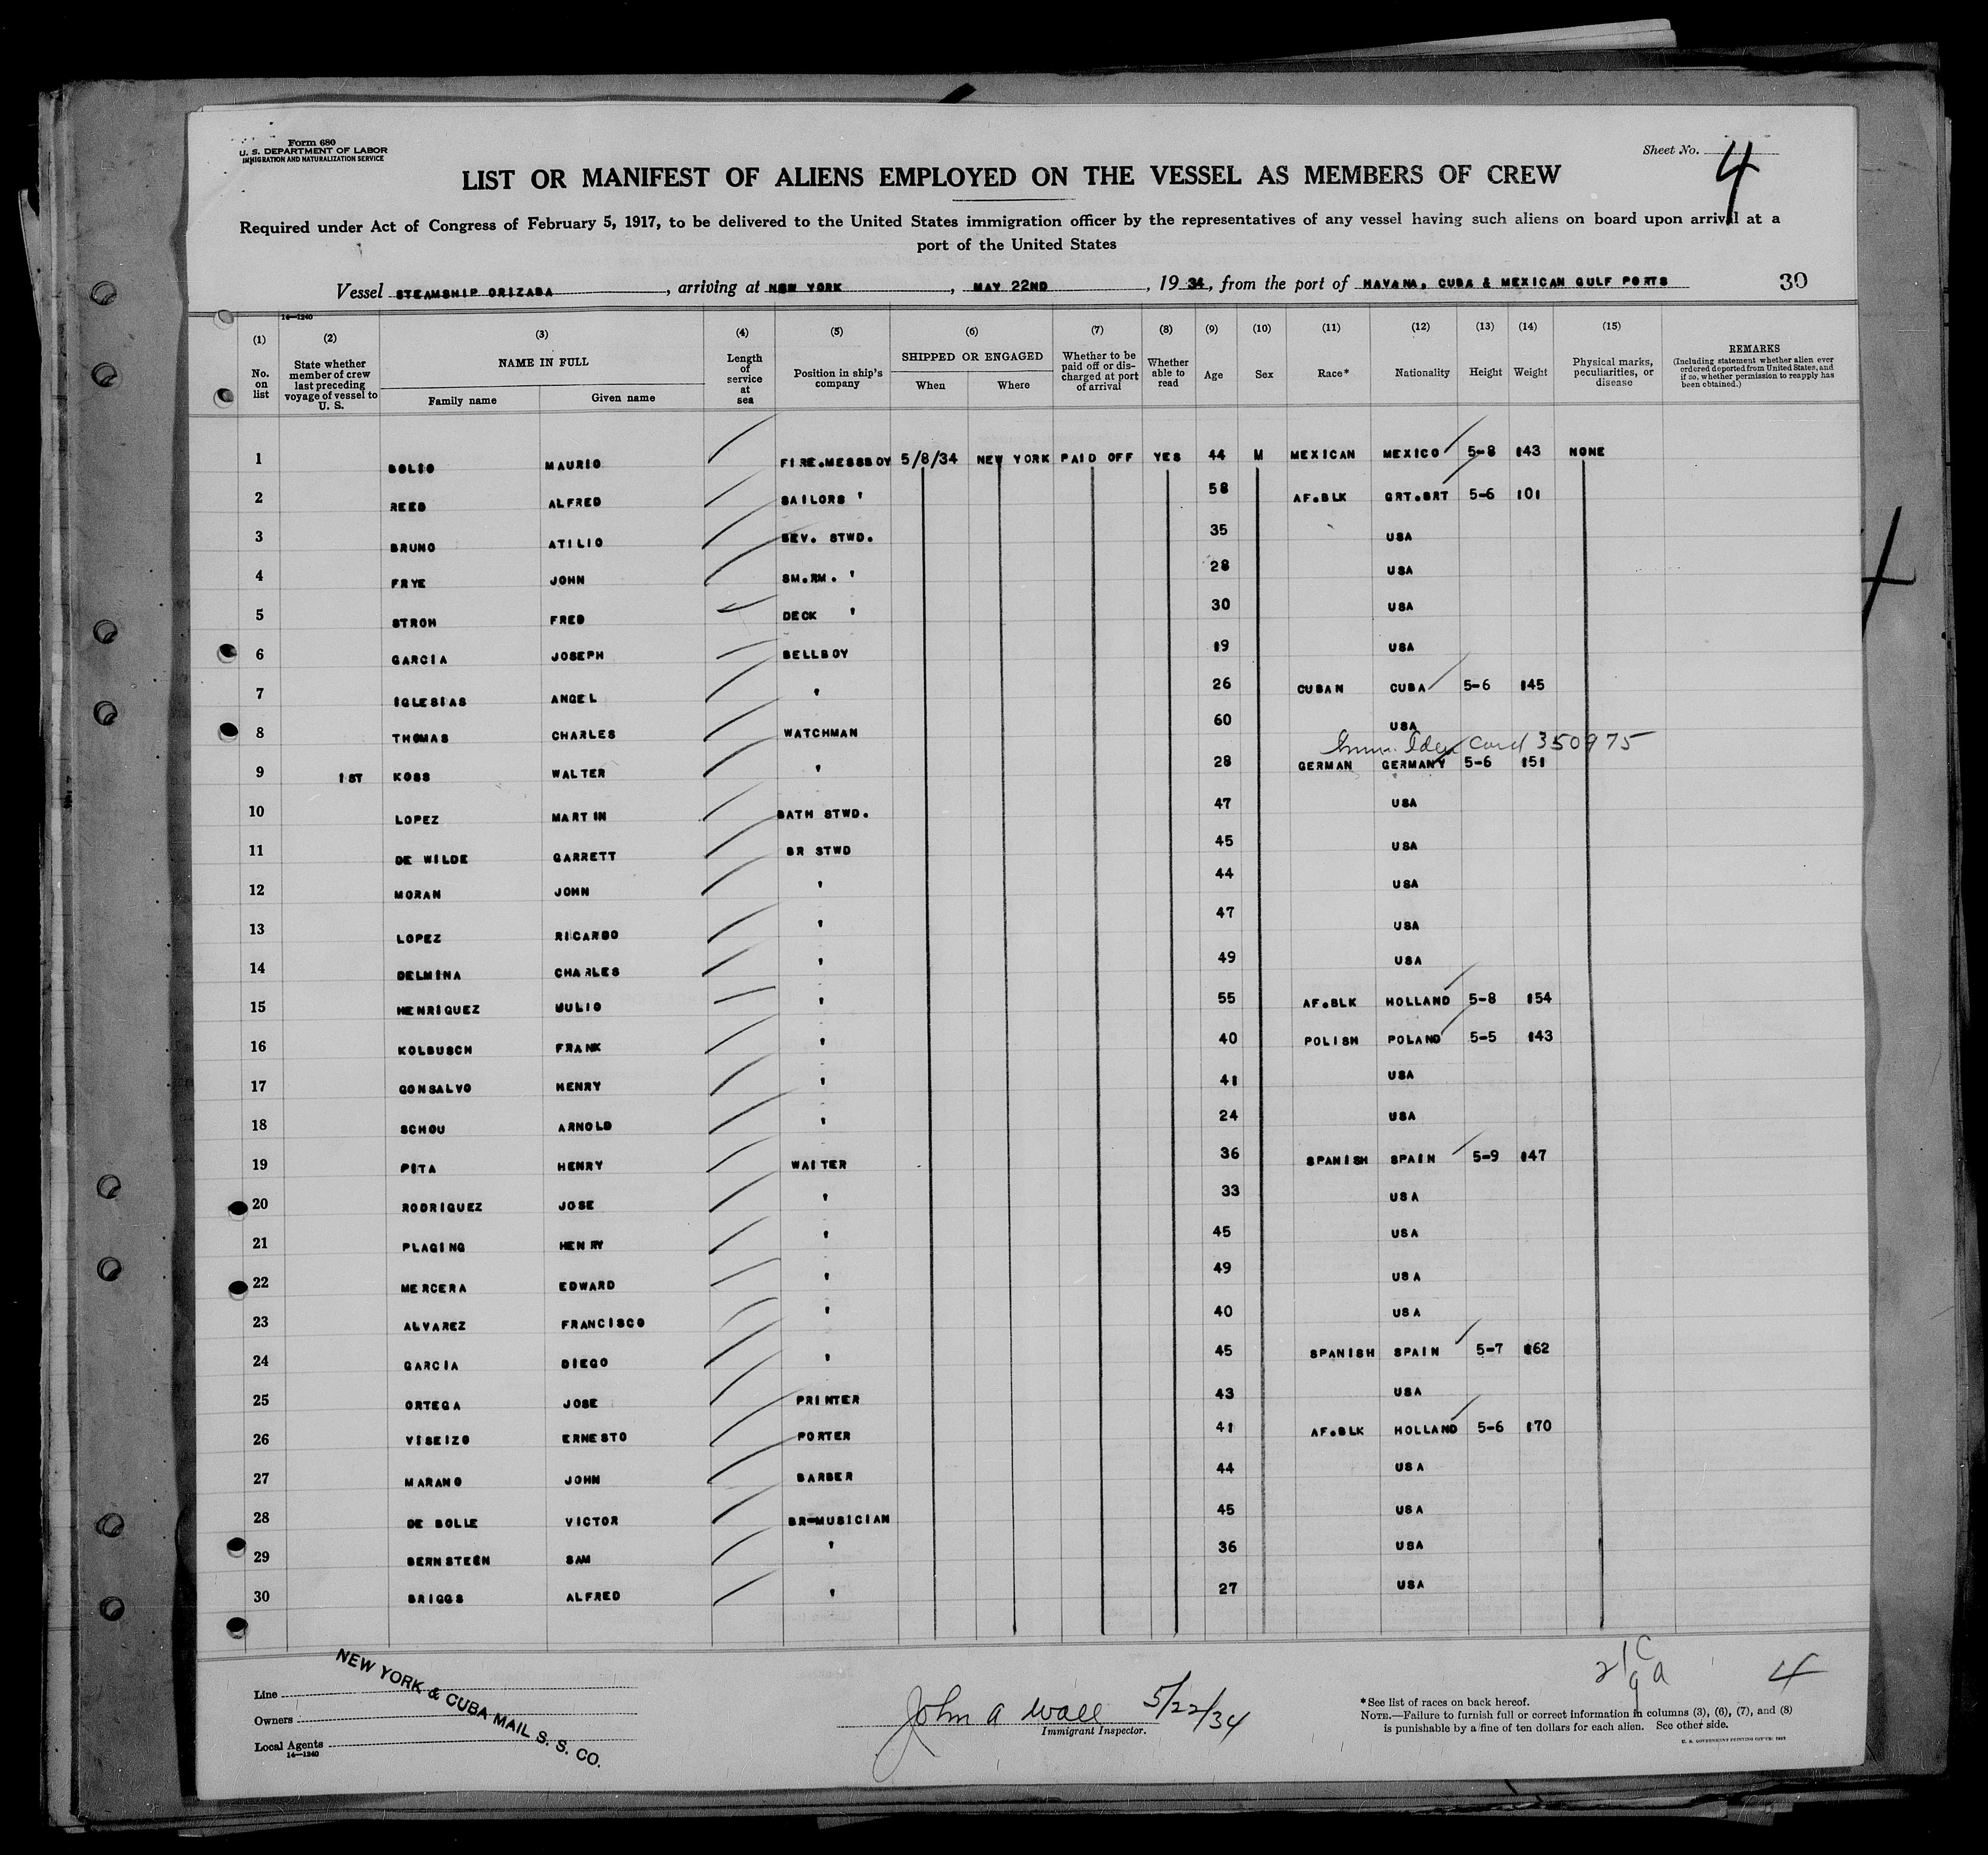 Form 680
U. S. DEPARTMENT OF LABOR
IMMIGRATION AND NATURALIZATION SERVICE
Sheet No. 4
LIST OR MANIFEST OF ALIENS EMPLOYED ON THE VESSEL AS MEMBERS OF CREW
Required under Act of Congress of February 5, 1917, to be delivered to the United States immigration officer by the representatives of any vessel having such aliens on board upon arrival at a
port of the United States
Vessel STEAMSHIP ORIZABA, arriving at NEW YORK, MAY 22ND, 1934, from the port of HAVANA, CUBA & MEXICAN GULF PORTS 30
14—1240
(1) (2) (3) (4) (5) (6) (7) (8) (9) (10) (11) (12) (13) (14) (15)
No. on list
State whether member of crew last preceding voyage of vessel to U. S.
NAME IN FULL
Family name Given name
Length of service at sea
Position in ship's company
SHIPPED OR ENGAGED
When Where
Whether to be paid off or discharged at port of arrival
Whether able to read
Age Sex Race* Nationality Height Weight
Physical marks, peculiarities, or disease
REMARKS
(Including statement whether alien ever ordered deported from United States, and if so, whether permission to reapply has been obtained.)
1 BOLIO MAURIO FIRE.MESSBOY 5/8/34 NEW YORK PAID OFF YES 44 M MEXICAN MEXICO 5-8 143 NONE
2 REED ALFRED SAILORS ' 58 AF.BLK GRT.BRT 5-6 101
3 BRUNO ATILIO BEV. STWD. 35 USA
4 FRYE JOHN SM.RM. ' 28 USA
5 STROH FRED DECK ' 30 USA
6 GARCIA JOSEPH BELLBOY 19 USA
7 IGLESIAS ANGEL ' 26 CUBAN CUBA 5-6 145
8 THOMAS CHARLES WATCHMAN 60 USA
Imm. Iden Card 350975
9 1ST KOSS WALTER ' 28 GERMAN GERMANY 5-6 151
10 LOPEZ MARTIN BATH STWD. 47 USA
11 DE WILDE GARRETT BR STWD 45 USA
12 MORAN JOHN ' 44 USA
13 LOPEZ RICARDO ' 47 USA
14 DELMINA CHARLES ' 49 USA
15 HENRIQUEZ ' 55 AF.BLK HOLLAND 5-8 154
16 KOLBUSCH FRANK ' 40 POLISH POLAND 5-5 143
17 GONSALVO HENRY ' 41 USA
18 SCHOU ARNOLD ' 24 USA
19 PITA HENRY WAITER 36 SPANISH SPAIN 5-9 147
20 RODRIGUEZ JOSE ' 33 USA
21 PLAGING HENRY ' 45 USA
22 MERCERA EDWARD ' 49 USA
23 ALVAREZ FRANCISCO ' 40 USA
24 GARCIA DIEGO ' 45 SPANISH SPAIN 5-7 162
25 ORTEGA JOSE PRINTER 43 USA
26 VISEIZO ERNESTO PORTER 41 AF.BLK HOLLAND 5-6 170
27 MARANO JOHN BARBER 44 USA
28 DE BOLLE VICTOR BR-MUSICIAN 45 USA
29 BERNSTEEN SAM ' 36 USA
30 BRIGGS ALFRED ' 27 USA
Line
Owners
Local Agents
14—1240
NEW YORK & CUBA MAIL S. S. CO.
John A Wall 5/22/34
Immigrant Inspector.
4
*See list of races on back hereof.
NOTE.—Failure to furnish full or correct information in columns (3), (6), (7), and (8)
is punishable by a fine of ten dollars for each alien. See other side.